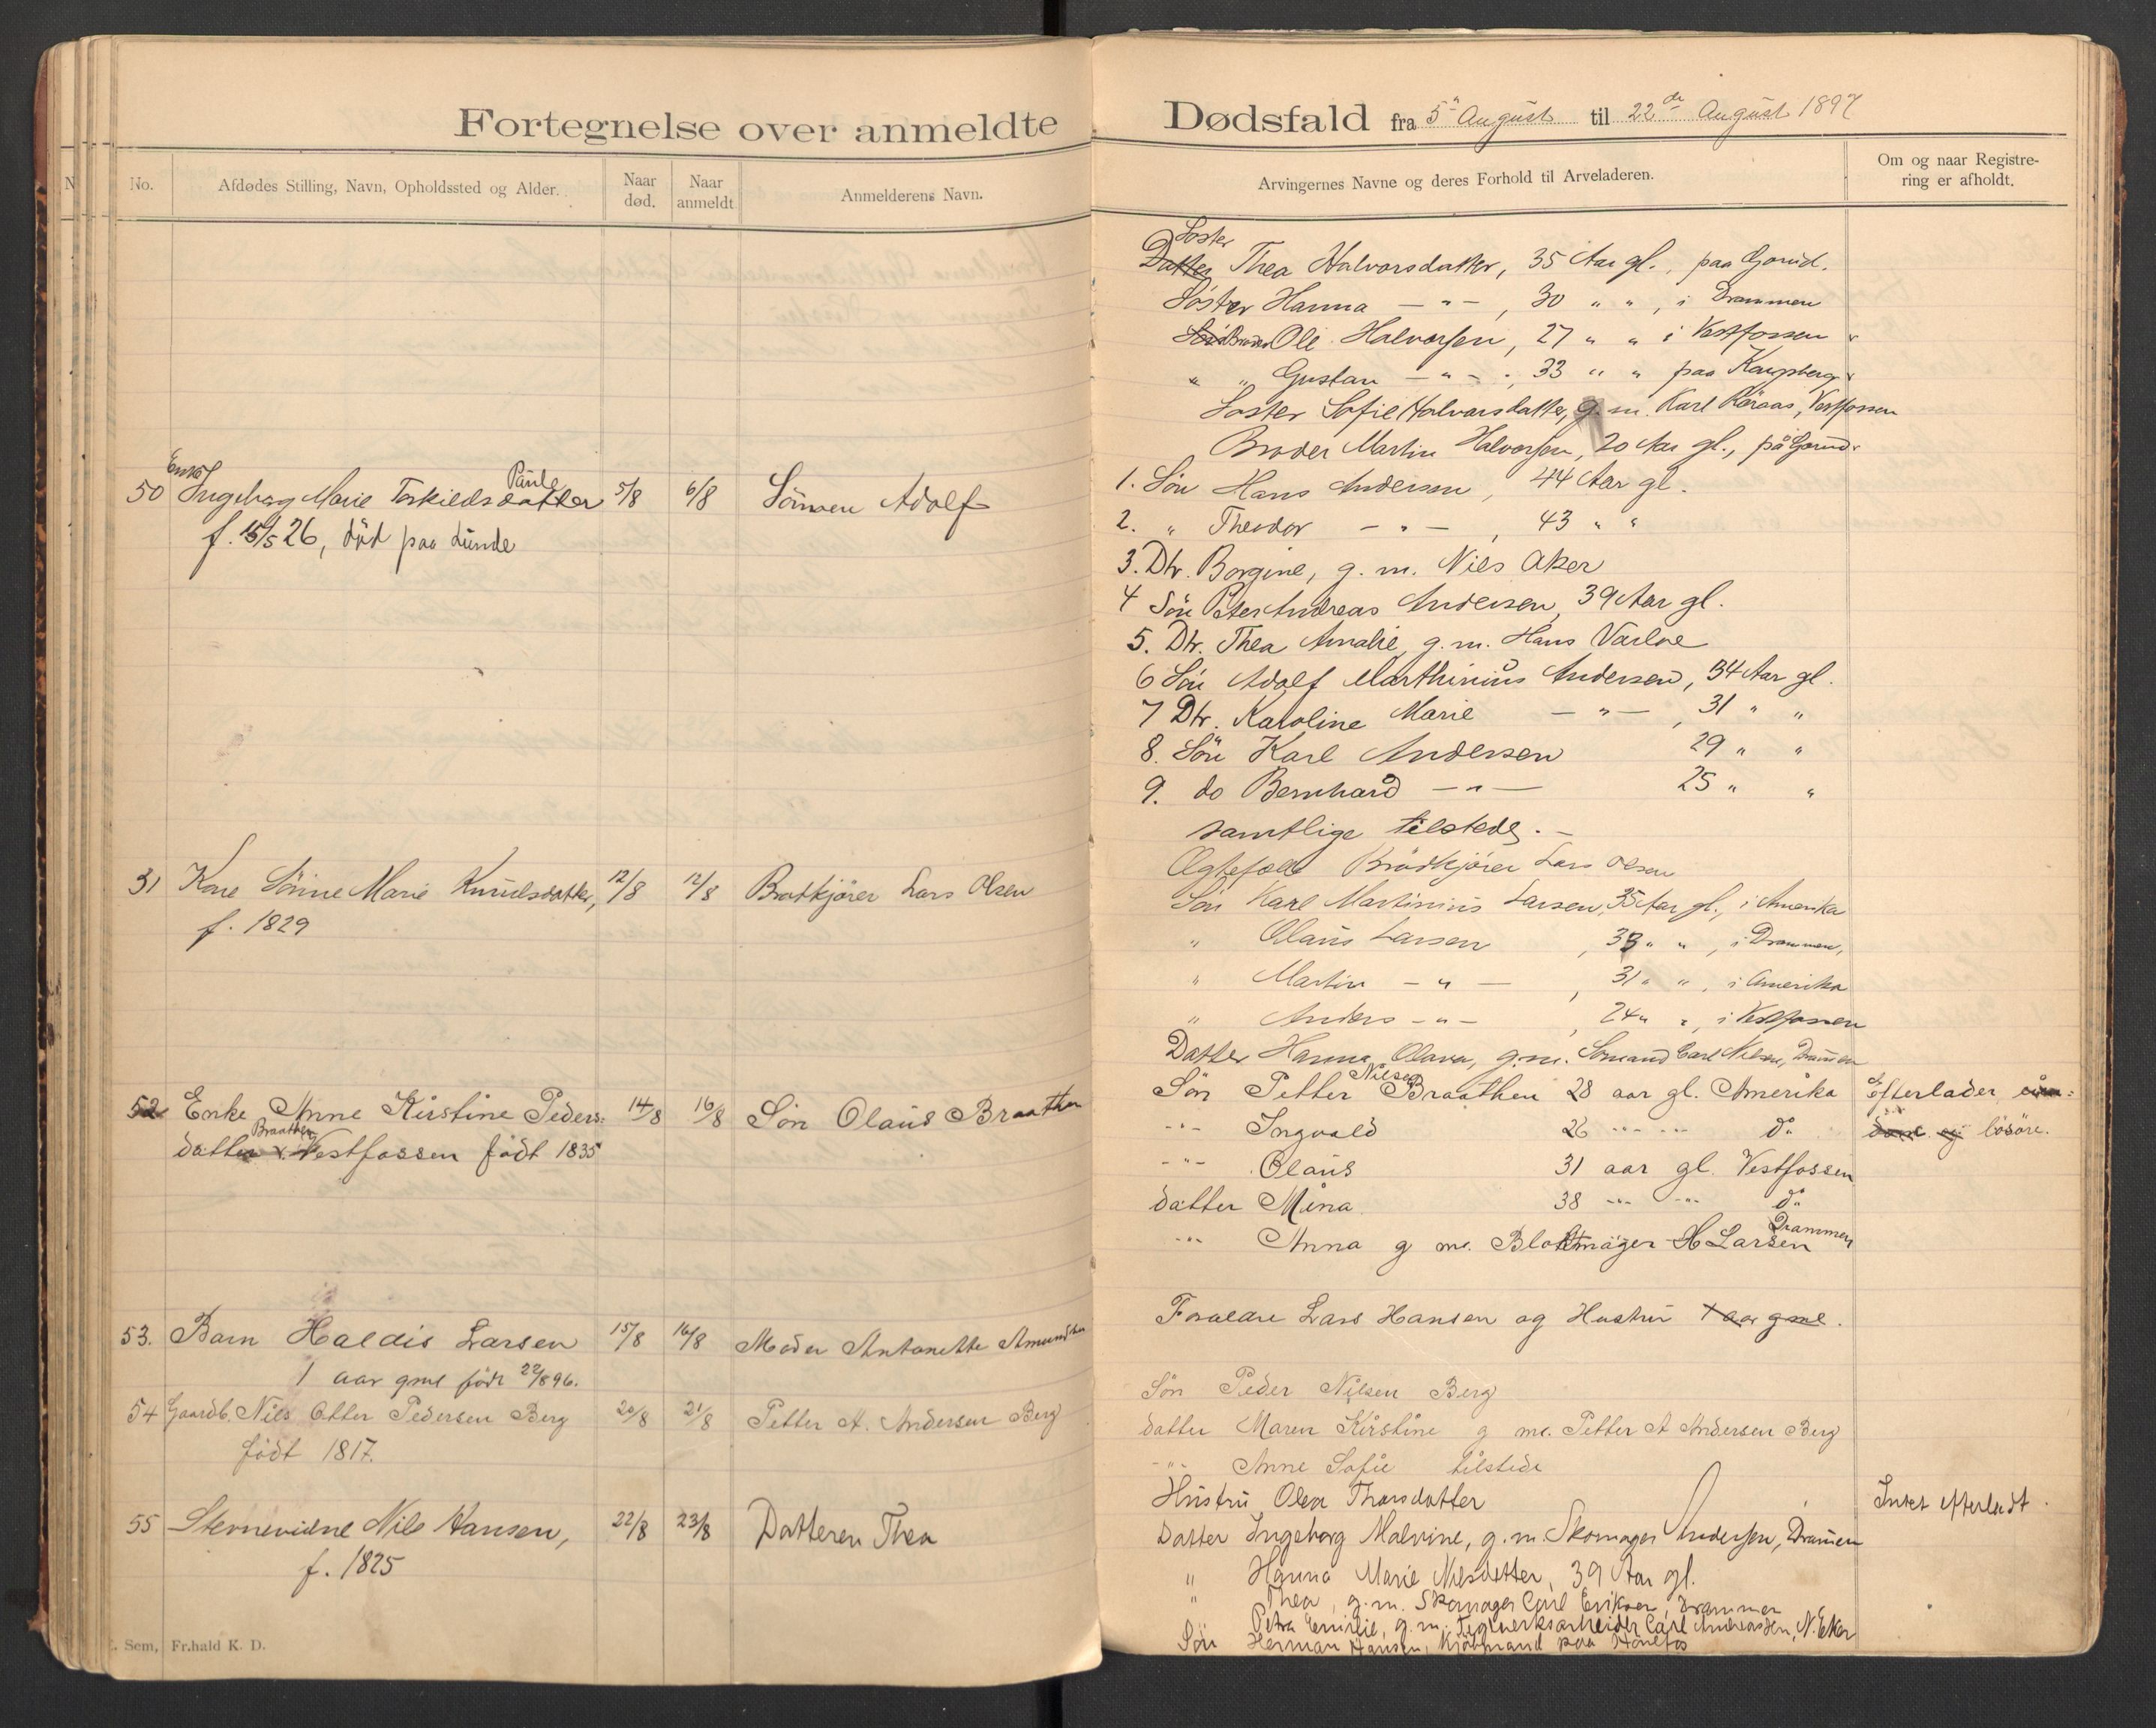 Fortegnelse over anmeldte Dødsfald fra 5" August til 22de August 1897
No. Afdødes Stilling, Navn, Opholdssted og Alder. Naar død. Naar anmeldt Anmelderens Navn.
Arvingernes Navne og deres Forhold til Arveladeren. Om og naar Registrering er afholdt.
Søster
Datter Thea Halvorsdatter, 35 Aar gl., paa Gorud.
Søster Hanna — " — , 30 " " , i Drammen
Broder Ole Halvorsen, 27 " " i Vestfossen
" " Gustav — " — , 33 " " paa Kongsberg
Søster Sofie Halvorsdatter, g. m. Karl Røraas, Vestfossen
Broder Martin Halvorsen, 20 Aar gl., på Gorud
Enke Paule
50 Ingeborg Marie Torkildsdatter 5/8 6/8 Sönnen Adolf
f. 15/5 26, död paa Lunde
1. Sön Hans Andersen, 44 Aar gl.
2. " Theodor — " — , 43 " "
3. Dtr. Borgine, g. m. Niels Aker
4 Sön Peter Andreas Andersen, 39 Aar gl.
5. Dtr. Thea Amalie, g. m. Hans Varloe
6 Sön Adolf Marthinius Andersen, 34 Aar gl.
7 Dtr. Karoline Marie — " — , 31 " "
8. Sön Karl Andersen 29 " "
9. do Bernhard — " — 25 " "
samtlige tilstede. —
31 Kone Sörine Marie Knudsdatter, 12/8 12/8 Brødkjører Lars Olsen
f. 1829
Ægtefælle Brödkjörer Lars Olsen
Sön Karl Martinius Larsen, 35 Aar gl., i Amerika
" Olaus Larsen , 33 " " , i Drammen,
" Martin — " — , 31 " " , i Amerika
" Anders — " — , 24 " " , i Vestfossen
Datter Hanna Olava, g. m. Sömand Carl Nilsen, Drammen
52 Enke Anne Kirstine Peders= 14/8 16/8 Sön Olaus Braathen
Braathen
datter Vestfossen födt 1835
Nilsen
Sön Petter Braathen 28 aar gl. Amerika Efterlader
-"- Ingvald 26 -"- -"- do lösöre.
-"- Olaus 31 aar gl. Vestfossen
datter Mina 38 -"- -"- do
Drammen
-"- Anna g m. Blokmager H Larsen
53. Barn Haldis Larsen 15/8 16/8 Moder Antonette Amundsen
1 aar gml födt 22/8 96.
Forældre Lars Hansen og Hustru 1 aar gml.
54 Gaardb. Nils Otter Pedersen Berg 20/8 21/8 Petter A. Andersen Berg
födt 1817.
Sön Peder Nilsen Berg
datter Maren Kirstine g m. Petter A Andersen Berg
-"- Anne Sofie tilstede
55 Nils Hansen, 22/8 23/8 Datteren Thea
f. 1825
Hustru Olea Thorsdatter Intet efterladt.
Datter Ingeborg Malvine, g. m. Skomager Andersen, Drammen
" Hanna Marie Nilsdatter, 39 Aar gl.
" Thea, g. m. Skomager Carl Eriksen, Drammen
Petra Emilie, g. m. Carl Andreassen, N. Eker
Sön Herman Hansen, paa Hönefos
. Sem, Fr.hald K. D.